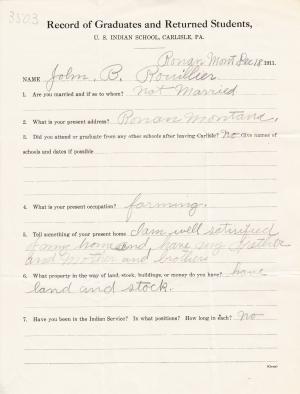 3303
Record of Graduates and Returned Students,
U. S. INDIAN SCHOOL, CARLISLE, PA.
Ronan Mont Dec 18 1911.
NAME John. B. Rouillier
1. Are you married and if so to whom? Not Married
2. What is your present address? Ronan Montana.
3. Did you attend or graduate from any other schools after leaving Carlisle? No Give names of
schools and dates if possible
4. What is your present occupation? farming.
5. Tell something of your present home I am well satisified
of my home and have my father
and mother and brothers
6. What property in the way of land, stock, buildings, or money do you have? have
land and stock.
7. Have you been in the Indian Service? In what positions? How long in each? No
(Over)